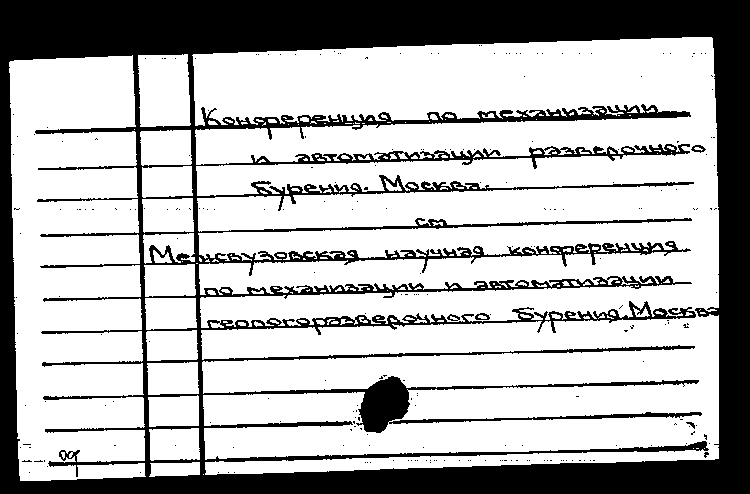 Конференция по механизации
и автоматизации разведочного
бурения. Москва.
см
Межвузовская научная конференция
по механизации и автоматизации
геологоразведочного бурения. Москва